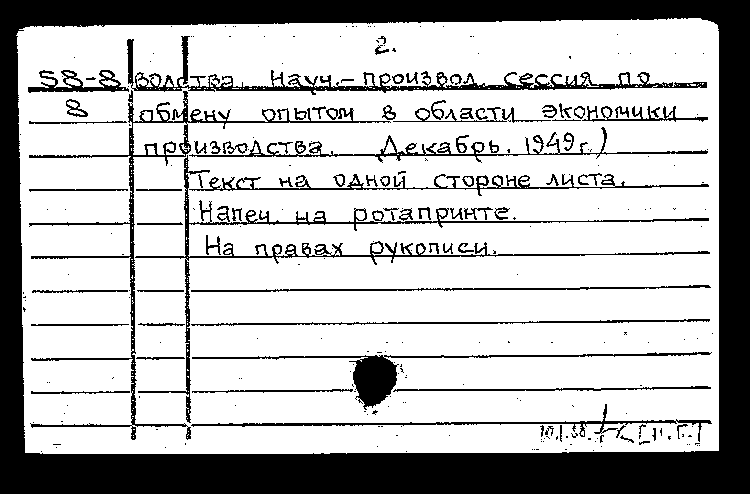 2.
58-8 водства. Науч.-произвол. сессия по
8 обмену опытом в области экономики
производства. Декабрь. 1949г.)
Текст на одной стороне листа.
Напеч. на ротапринте.
На правах рукописи.